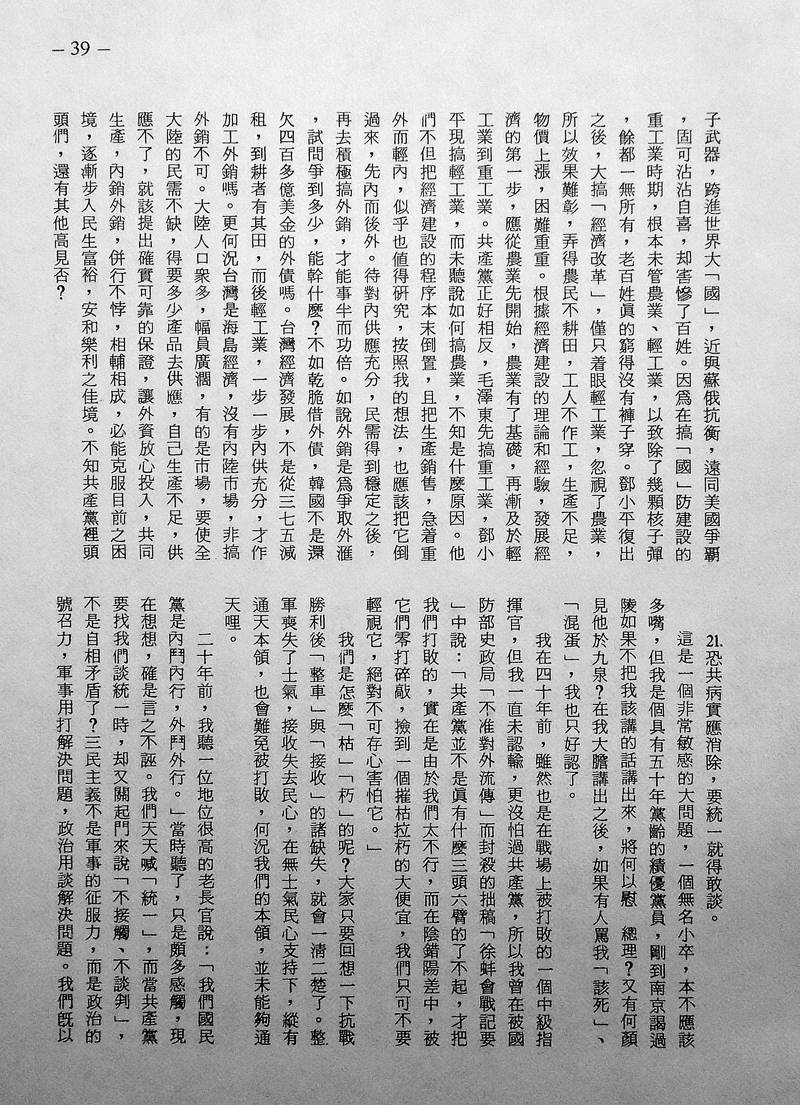 – 39 –
子武器，跨進世界大「國」，近與蘇俄抗衡，遠同美國爭霸
，固可沾沾自喜，却害慘了百姓。因爲在搞「國」防建設的
重工業時期，根本未管農業、輕工業，以致除了幾顆核子彈
，餘都一無所有，老百姓眞的窮得沒有褲子穿。鄧小平復出
之後，大搞「經濟改革」，僅只着眼輕工業，忽視了農業，
所以效果難彰，弄得農民不耕田，工人不作工，生產不足，
物價上漲，困難重重。根據經濟建設的理論和經驗，發展經
濟的第一步，應從農業先開始，農業有了基礎，再漸及於輕
工業到重工業。共產黨正好相反，毛澤東先搞重工業，鄧小
平現搞輕工業，而未聽說如何搞農業，不知是什麼原因。他
們不但把經濟建設的程序本末倒置，且把生產銷售，急着重
外而輕內，似乎也值得研究，按照我的想法，也應該把它倒
過來，先內而後外。待對內供應充分，民需得到穩定之後，
再去積極搞外銷，才能事半而功倍。如說外銷是爲爭取外滙
，試問爭到多少，能幹什麼？不如乾脆借外債，韓國不是還
欠四百多億美金的外債嗎。台灣經濟發展，不是從三七五減
租，到耕者有其田，而後輕工業，一步一步內供充分，才作
加工外銷嗎。更何況台灣是海島經濟，沒有內陸市場，非搞
外銷不可。大陸人口衆多，幅員廣濶，有的是市場，要使全
大陸的民需不缺，得要多少產品去供應，自己生產不足，供
應不了，就該提出確實可靠的保證，讓外資放心投入，共同
生產，內銷外銷，併行不悖，相輔相成，必能克服目前之困
境，逐漸步入民生富裕，安和樂利之佳境。不知共產黨裡頭
頭們，還有其他高見否？
21.恐共病實應消除，要統一就得敢談。
這是一個非常敏感的大問題，一個無名小卒，本不應該
多嘴，但我是個具有五十年黨齡的績優黨員，剛到南京謁過
陵如果不把我該講的話講出來，將何以慰　總理？又有何顏
見他於九泉？在我大膽講出之後，如果有人罵我「該死」、
「混蛋」，我也只好認了。
我在四十年前，雖然也是在戰場上被打敗的一個中級指
揮官，但我一直未認輸，更沒怕過共產黨，所以我曾在被國
防部史政局「不准對外流傳」而封殺的拙稿「徐蚌會戰記要
」中說：「共產黨並不是眞有什麼三頭六臂的了不起，才把
我們打敗的，實在是由於我們太不行，而在陰錯陽差中，被
它們零打碎敲，撿到一個摧枯拉朽的大便宜，我們只可不要
輕視它，絕對不可存心害怕它。」
我們是怎麼「枯」「朽」的呢？大家只要回想一下抗戰
勝利後「整車」與「接收」的諸缺失，就會一清二楚了。整
軍喪失了士氣，接收失去民心，在無士氣民心支持下，縱有
通天本領，也會難冤被打敗，何況我們的本領，並未能夠通
天哩。
二十年前，我聽一位地位很高的老長官說：「我們國民
黨是內鬥內行，外鬥外行。」當時聽了，只是頗多感觸，現
在想想，確是言之不誣。我們天天喊「統一」，而當共產黨
要找我們談統一時，却又關起門來說「不接觸、不談判」，
不是自相矛盾了？三民主義不是軍事的征服力，而是政治的
號召力，軍事用打解決問題，政治用談解決問題。我們旣以